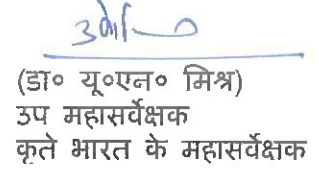 (डा० यू०एन० मिश्र)
उप महासर्वेक्षक
कृते भारत के महासर्वेक्षक